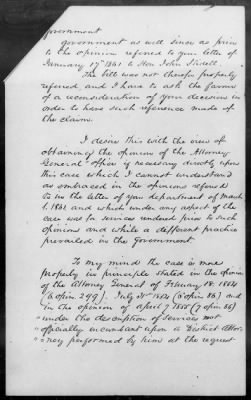 government
government as well since as prior
to the opinion referred to your letter of
January 17th 1861 to Hon. John Slidell.
The bill was not therefor properly
referred, and I have to ask the favor
of a reconsideration of your decision in
order to have such reference made of
the claim.
I desire this with the view of
obtaining the opinion of the Attorney
General's office if necessary directly upon
this case which I cannot understand
as embraced in the opinions refered
to in the letter of your department of March
1861 and which under any aspect of the
case was for services rendered prior to such
opinions and while a different practice
prevailed in the Government
To my mind the case is more
properly in principle stated in the opinion
of the Attorney General of February 18. 1854
(6 opin. 299). July 31st 1854 (6 opin 85) and
in the opinion of april 7 1855 (7 opin 85)
"under the description of services not
"officially incumbent upon a District Attor-
"ney performed by him at the request